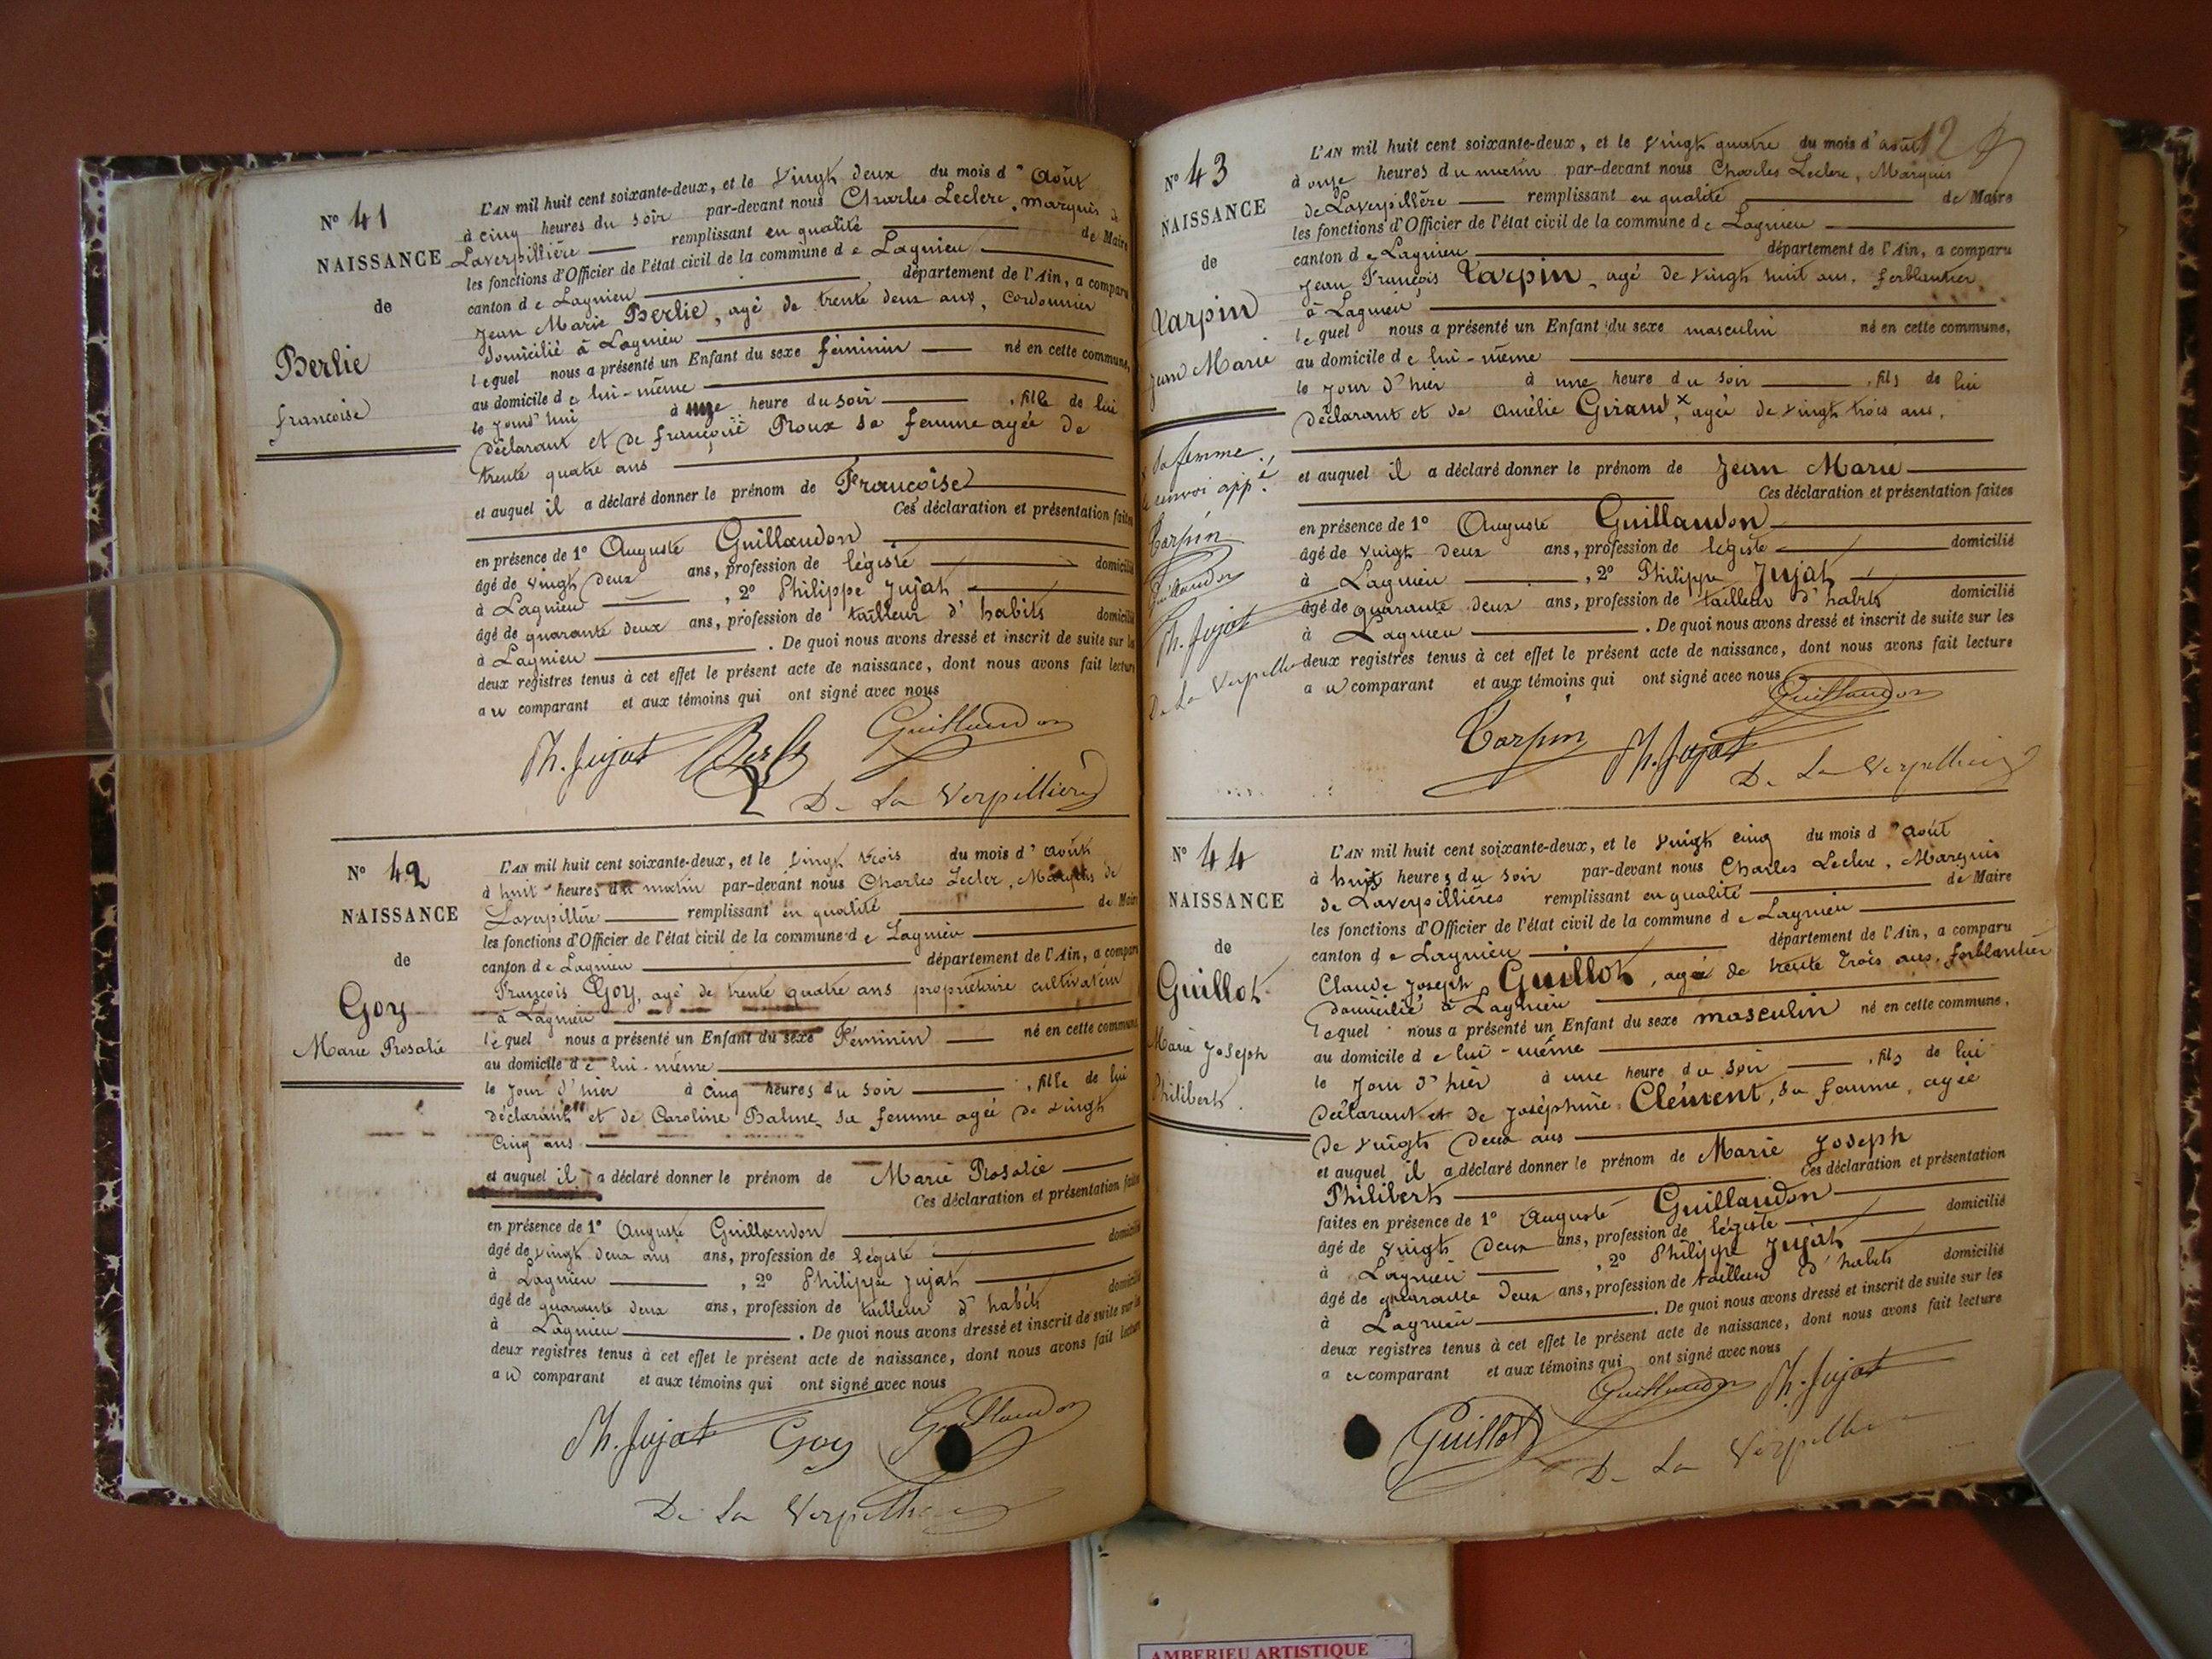 N° 41
NAISSANCE
de
Berlie
françoise
L'AN mil huit cent soixante-deux, et le Vingt deux du mois d'Août
à cinq heures du soir par-devant nous Charles Leclerc, marquis de
Laverpillière remplissant en qualité de Maire
les fonctions d'Officier de l'état civil de la commune de Lagnieu
canton de Lagnieu département de l'Ain, a comparu
Jean Marie Berlie, agé de trente deux ans, Cordonnier
domicilié à Lagnieu
lequel nous a présenté un Enfant du sexe féminin né en cette commune,
au domicile de lui-même
le jourd'hui à une heure du soir, fille de lui
déclarant et de françoise Roux sa femme agée de
trente quatre ans
et auquel il a déclaré donner le prénom de Françoise
Ces déclaration et présentation faites
en présence de 1° Auguste Guillaudon
âgé de vingt deux ans, profession de légiste domicilié
à Lagnieu, 2° Philippe Jujat
âgé de quarante deux ans, profession de tailleur d'habits domicilié
à Lagnieu. De quoi nous avons dressé et inscrit de suite sur les
deux registres tenus à cet effet le présent acte de naissance, dont nous avons fait lecture
au comparant et aux témoins qui ont signé avec nous
Th. Jujat Guillaudon
De La Verpillière
N° 42
NAISSANCE
de
Goy
Marie Rosalie
L'AN mil huit cent soixante-deux, et le vingt trois du mois d'août
à huit heures du matin par-devant nous Charles Lecler, Marquis de
Laverpillère remplissant en qualité de Maire
les fonctions d'Officier de l'état civil de la commune de Lagnieu
canton de Lagnieu département de l'Ain, a comparu
François Goy, agé de trente quatre ans propriétaire cultivateur
à Lagnieu
lequel nous a présenté un Enfant du sexe Féminin né en cette commune
au domicile de lui-même
le jour d'hier à cinq heures du soir, fille de lui
déclarant et de Caroline Balme, sa femme agée de vingt
cinq ans
et auquel il a déclaré donner le prénom de Marie Rosalie
Ces déclaration et présentation faites
en présence de 1° Auguste Guillaudon
âgé de vingt deux ans ans, profession de légiste domicilié
à Lagnieu, 2° Philippe Jujat
âgé de quarante deux ans, profession de tailleur d'habits domicilié
à Lagnieu. De quoi nous avons dressé et inscrit de suite sur les
deux registres tenus à cet effet le présent acte de naissance, dont nous avons fait lecture
au comparant et aux témoins qui ont signé avec nous
Th. Jujat Goy Guillaudon
De La Verpillière
12
N° 43
NAISSANCE
de
Tarpin
Jean Marie
x sa femme,
renvoi app.é
Tarpin
Guillaudon
Th. Jujat
De La Verpillière
L'AN mil huit cent soixante-deux, et le vingt quatre du mois d'août
à onze heures du matin par-devant nous Charles Leclerc, Marquis
de Laverpillère remplissant en qualité de Maire
les fonctions d'Officier de l'état civil de la commune de Lagnieu
canton de Lagnieu département de l'Ain, a comparu
Jean François Tarpin, agé de vingt huit ans, ferblantier,
à Lagnieu
lequel nous a présenté un Enfant du sexe masculin né en cette commune,
au domicile de lui-même
le jour d'hier à une heure du soir, fils de lui
déclarant et de Amélie Giraud,x agée de vingt trois ans,
et auquel il a déclaré donner le prénom de Jean Marie
Ces déclaration et présentation faites
en présence de 1° Auguste Guillaudon
âgé de vingt deux ans, profession de légiste domicilié
à Lagnieu, 2° Philippe Jujat
âgé de quarante deux ans, profession de tailleur d'habits domicilié
à Lagnieu. De quoi nous avons dressé et inscrit de suite sur les
deux registres tenus à cet effet le présent acte de naissance, dont nous avons fait lecture
au comparant et aux témoins qui ont signé avec nous
Guillaudon
Tarpin Th. Jujat
De La Verpillière
N° 44
NAISSANCE
de
Guillot
Marie Joseph
Philibert.
L'AN mil huit cent soixante-deux, et le vingt cinq du mois d'août
à huit heures du soir par-devant nous Charles Leclerc, Marquis
de Laverpillières remplissant en qualité de Maire
les fonctions d'Officier de l'état civil de la commune de Lagnieu
canton de Lagnieu département de l'Ain, a comparu
Claude Joseph Guillot, agé de trente trois ans, ferblantier
domicilié à Lagnieu
lequel nous a présenté un Enfant du sexe masculin né en cette commune,
au domicile de lui-même
le jour d'hier à une heure du soir, fils de lui
déclarant et de Joséphine Clément, sa femme, agée
de vingt deux ans
et auquel il a déclaré donner le prénom de Marie Joseph
Philibert Ces déclaration et présentation
faites en présence de 1° Auguste Guillaudon
âgé de vingt deux ans, profession de légiste domicilié
à Lagnieu, 2° Philippe Jujat
âgé de quarante deux ans, profession de tailleur d'habits domicilié
à Lagnieu. De quoi nous avons dressé et inscrit de suite sur les
deux registres tenus à cet effet le présent acte de naissance, dont nous avons fait lecture
au comparant et aux témoins qui ont signé avec nous
Guillot Guillaudon Th. Jujat
De La Verpillière
AMBERIEU ARTISTIQUE